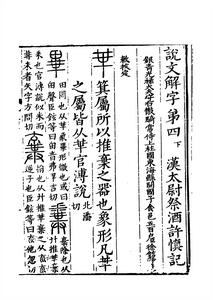 說文解字弟四 下 漢太尉祭酒許慎記
銀青光禄大夫守右散騎常侍上柱國東海縣開國子食邑五百戶臣徐鉉等奉
敕校定
𠦒 箕屬所以推棄之器也象形凡𠦒
之屬皆从𠦒官溥說 北潘切
畢 田罔也从𠦒象畢形微也或曰甶聲臣鉉等曰甶音弗卑吉切 糞 棄除也从廾推𠦒棄
釆也官溥說似米而非米者矢字方問切 棄 捐也从廾推𠦒棄之从𠫓𠫓逆子也臣鉉等曰𠫓他忽切